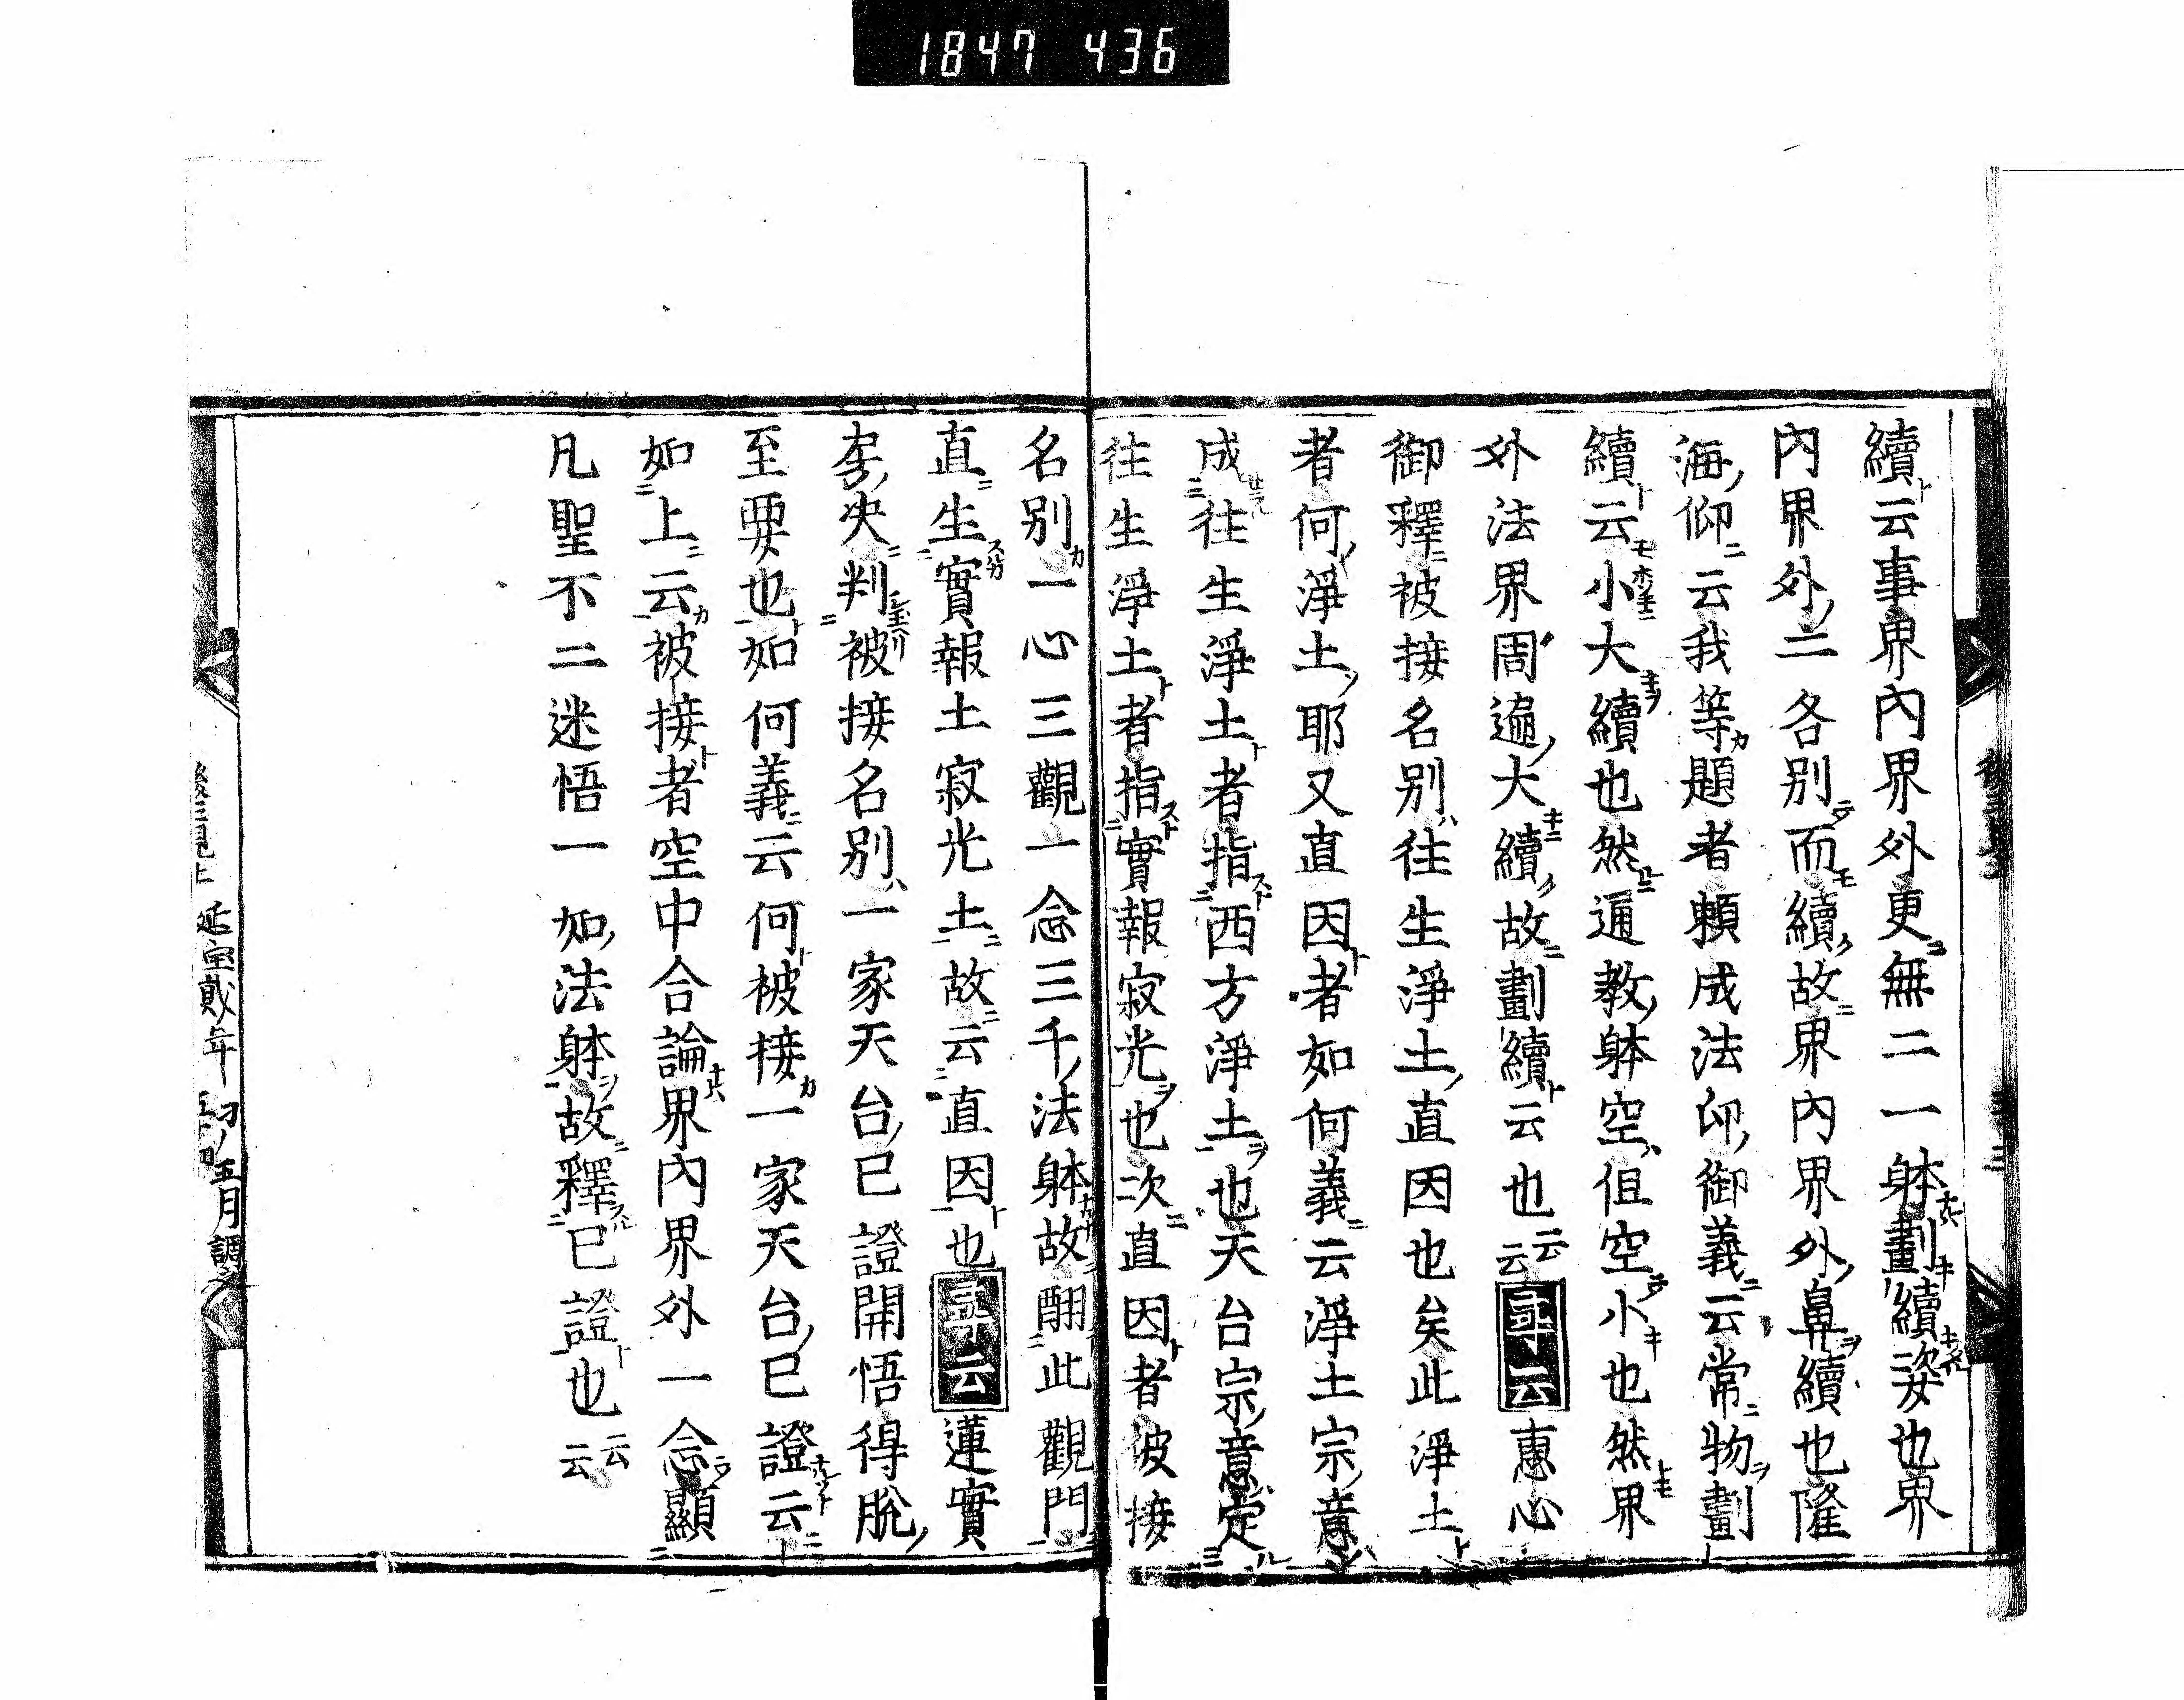 1847 436
續云事界內界外更無二一躰劃續姿也界
內界外二各別而續故界內界外鼻續也隆
海仰云我等題者頼成法印御義云常物劃
續云小大續也然通教躰空但空小也然界
外法界周遍大續故劃續云也云云尋云惠心
御釋被接名別往生淨土直因也矣此淨土
者何淨土耶又直因者如何義云淨土宗意
成往生淨土者指西方淨土也天台宗意定
往生淨土者指實報寂光也次直因者彼接
名別一心三觀一念三千法躰故翻此觀門
直生實報土寂光土故云直因也尋云蓮實
房決判被接名別一家天台已證開悟得脫
至要也如何義云何被接一家天台已證云
如上云被接者空中合論界內界外一念顯
凡聖不二迷悟一如法躰故釋已證也云云
延宝貳年 五月調之